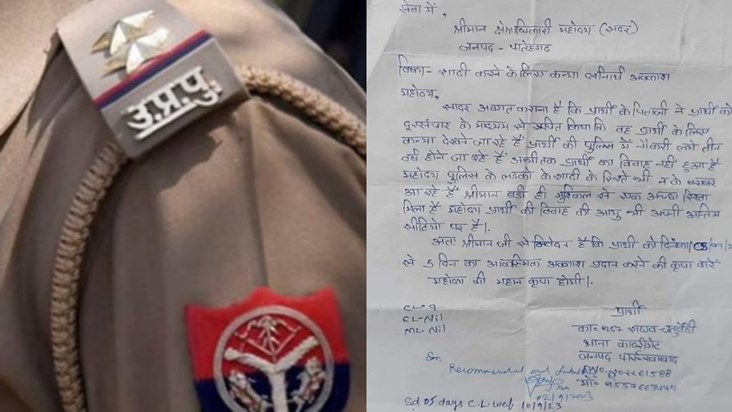 उ.प्र.पु.
सेवा में,
श्रीमान क्षेत्राधिकारी महोदय (सदर)
जनपद - फतेहगढ़
विषय- सादी करने के लिए कन्या दर्शनार्थ अवकाश
महोदय,
सादर अवगत कराना है कि प्रार्थी के पिताजी ने प्रार्थी को
दूरसंचार के माध्यम से सूचित किया कि वह प्रार्थी के लिए
कन्या देखने जा रहे हैं प्रार्थी की पुलिस में नौकरी लगे तीन
वर्ष होने जा रहे हैं अभी तक प्रार्थी का विवाह नहीं हुआ है
महोदय पुलिस के लड़कों के शादी के रिश्ते भी न के बराबर
आ रहे हैं श्रीमान बड़ी ही मुश्किल से एक अच्छा रिश्ता
मिला है महोदय प्रार्थी की विवाह की आयु भी अपनी अन्तिम
सीढ़ियों पर है।
अतः श्रीमान जी से निवेदन है कि प्रार्थी को दिनांक
से 5 दिन का आकस्मिक अवकाश प्रदान करने की कृपा करें
महोदय की महान कृपा होगी।
प्रार्थी
CL-9
EL-Nil
ML-Nil
का० राघव चतुर्वेदी
थाना कादरीगेट
जनपद फर्रुखाबाद
Recommended and
02/9/2023
Sd 05 days C.L. w.e.f 10/9/23